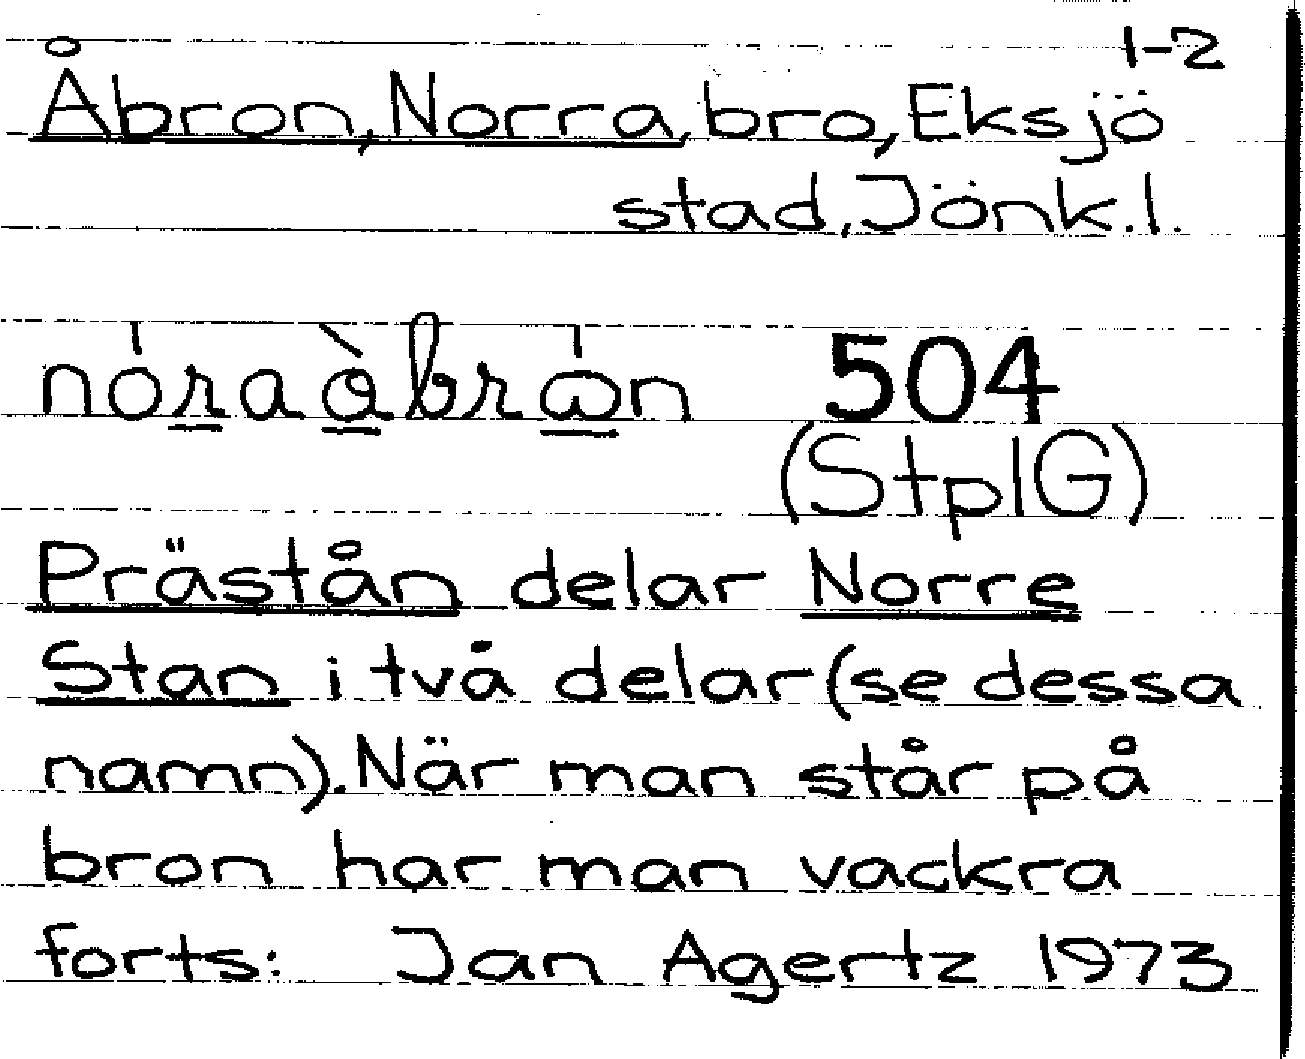 1-2
Åbron, Norra, bro, Eksjö
stad, Jönk.l.
504
(StplG)
Prästån delar Norre
Stan i två delar (se dessa
namn). När man står på
bron har man vackra
forts: Jan Agertz 1973